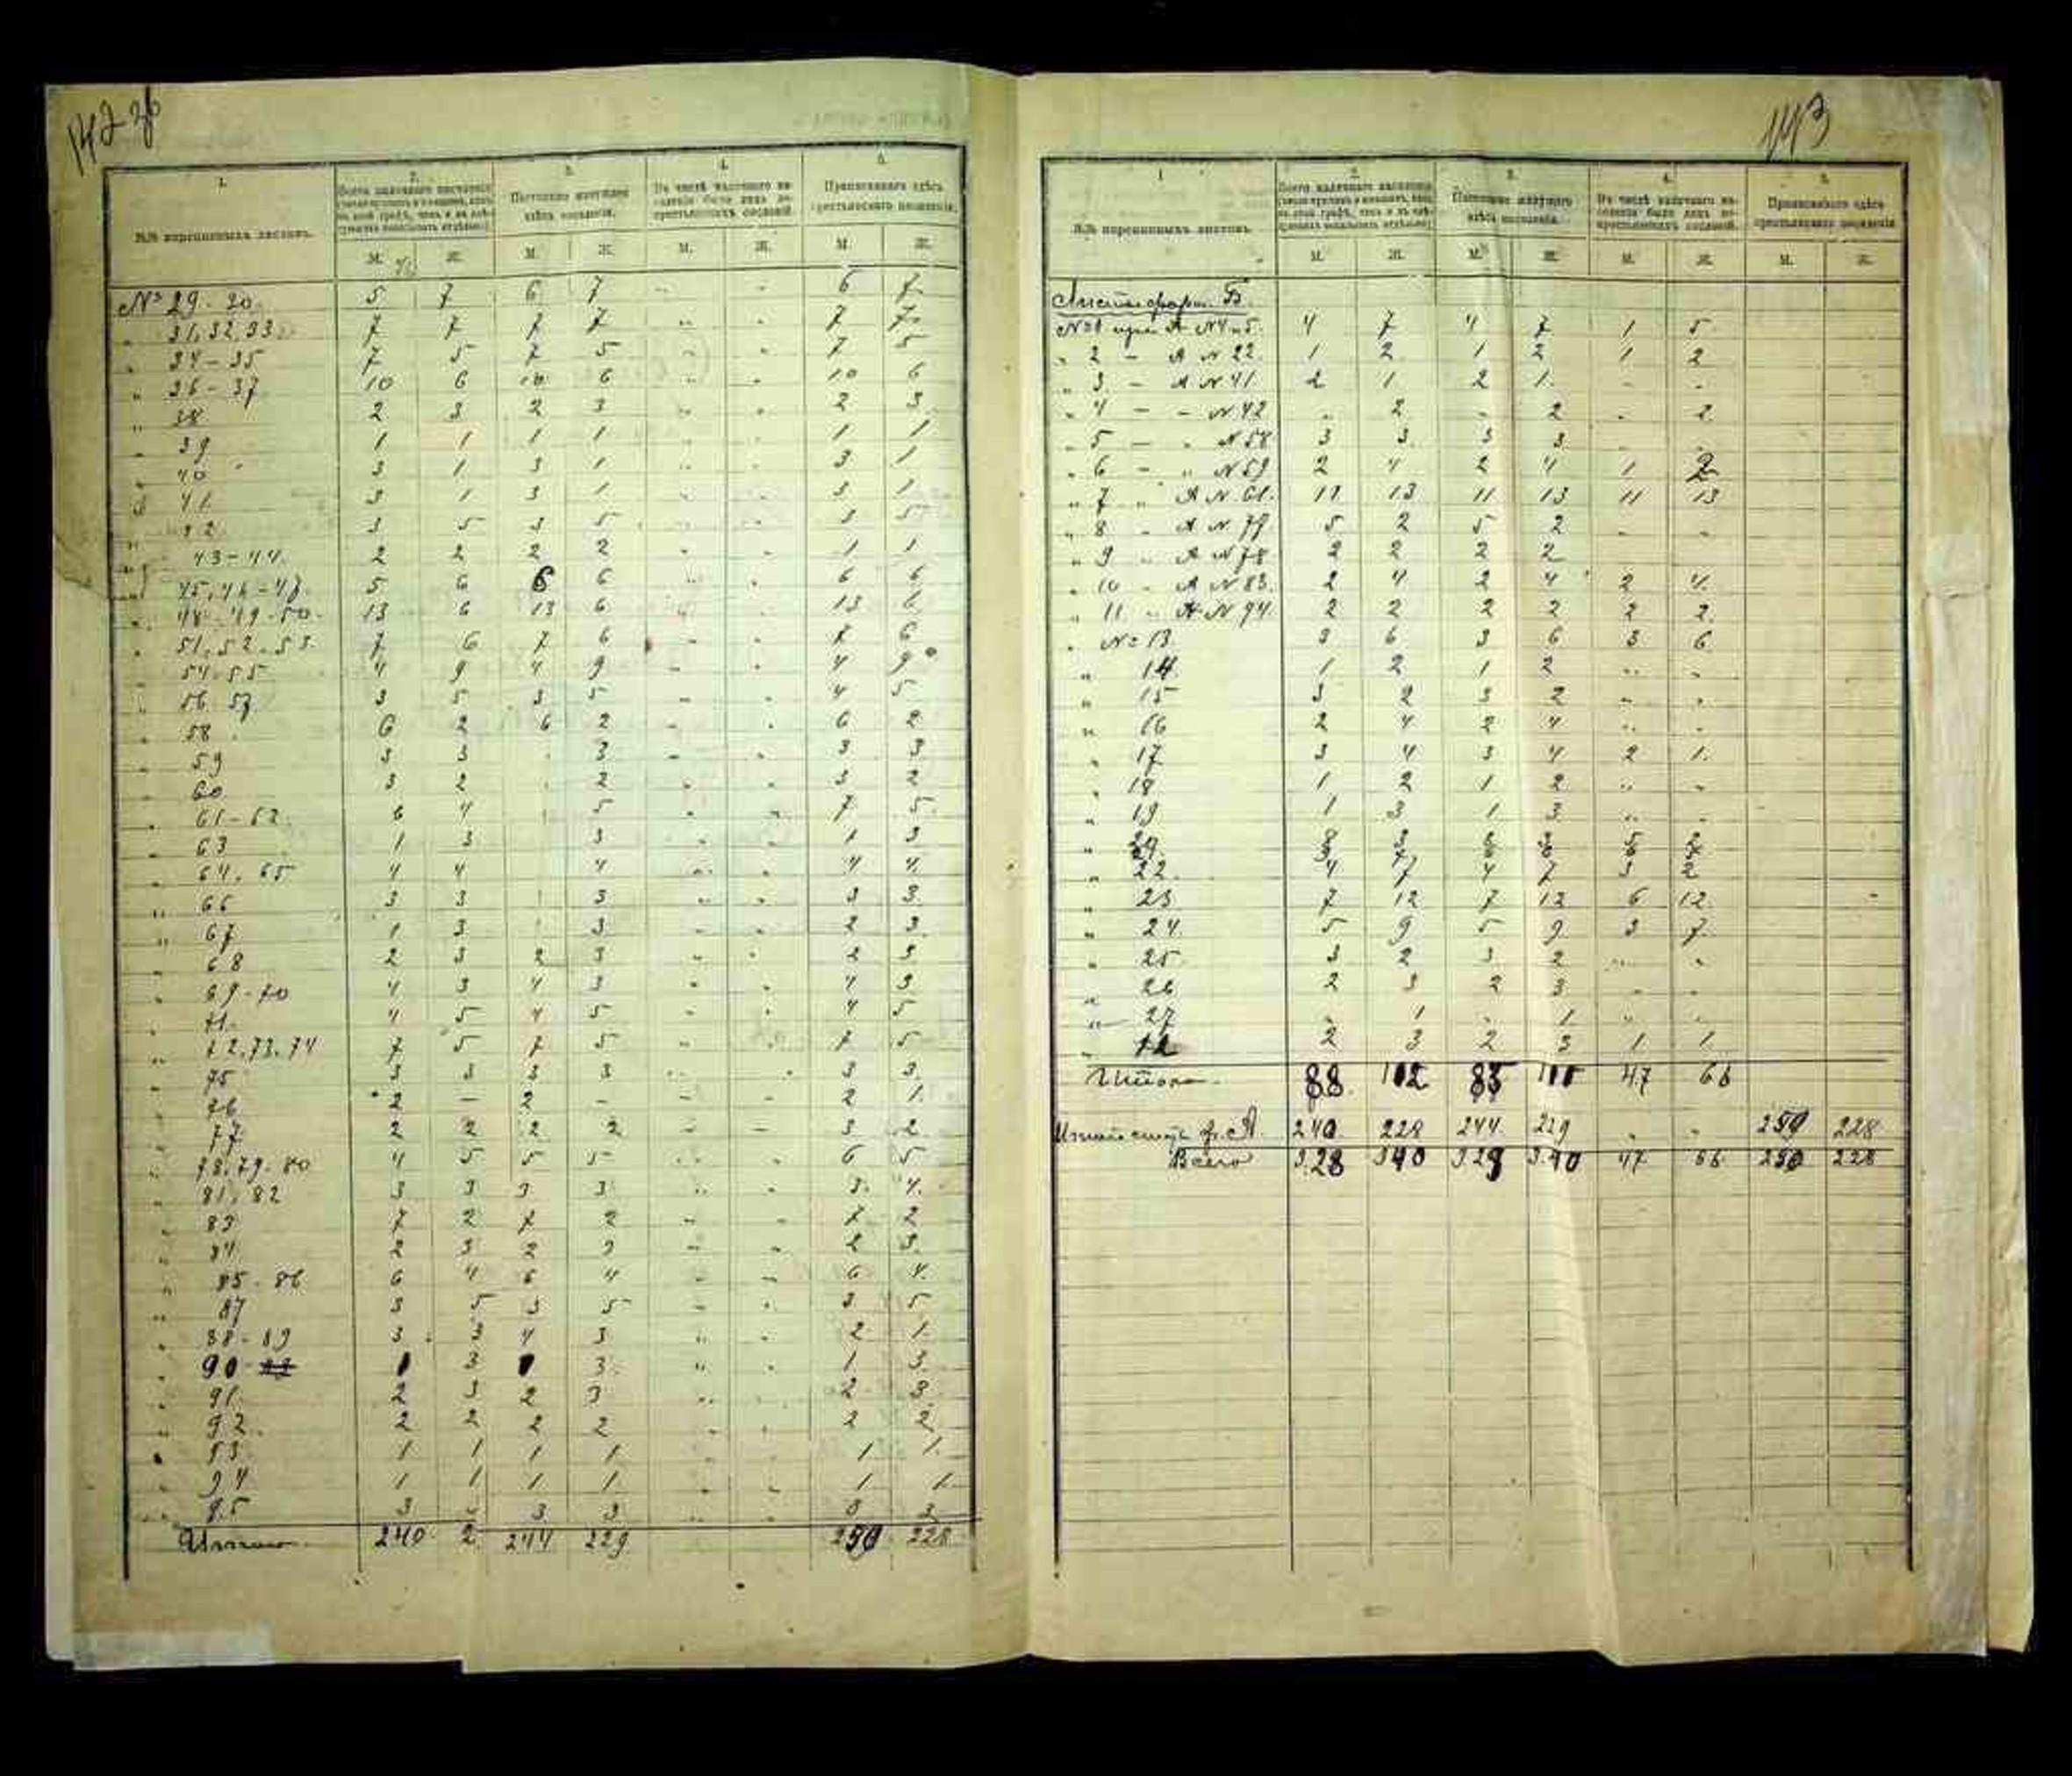 142 об
1. 2. 3. 4. 5.
№№ переписныхъ листовъ. Всего наличнаго населенія Постоянно живущаго здѣсь населенія. Въ числѣ наличнаго населенія было лицъ не-крестьянскихъ сословій. Приписаннаго здѣсь крестьянскаго населенія.
М. Ж. М. Ж. М. Ж. М. Ж.
№ 29-30. 5 7 6 7 " " 6 7
" 31, 32, 33. 7 7 7 7 " " 7 7
" 34-35 7 5 7 5 " " 7 5
" 36-37 10 6 10 6 " " 10 6
" 38 2 3 2 3 " " 2 3
" 39 1 1 1 1 " " 1 1
" 40 3 1 3 1 " " 3 1
" 41 3 1 3 1 " " 3 1
" 42 3 5 3 5 " " 3 5
" 43-44. 2 2 2 2 " " 1 1
" 45, 46-47. 5 6 6 6 " " 6 6
" 48-49-50. 13 6 13 6 " " 13 6
" 51. 52. 53. 7 6 7 6 " " 7 6
54-55 4 9 4 9 " " 4 9
" 56-57 3 5 3 5 " " 4 5
" 58 6 2 6 2 " " 6 2
" 59 3 3 3 " " 3 3
" 60 3 2 2 " " 3 2
" 61-62. 6 4 5 " " 7 5
" 63 1 3 3 " " 1 3
" 64, 65 4 4 4 " " 4 4
" 66 3 3 3 " " 3 3
" 67 1 3 3 " " 2 3
" 68 2 3 2 3 " " 2 3
" 69-70 4 3 4 3 " " 4 3
" 71. 4 5 4 5 " " 4 5
" 72. 73. 74 7 5 7 5 " " 7 5
" 75 3 3 3 3 " " 3 3
" 76 2 - 2 - - - 2 1
" 77 2 2 2 2 - - 3 2
" 78. 79. 80 4 5 5 5 " " 6 5
" 81. 82 3 3 3 3 " " 3 4
" 83 7 2 7 2 " " 7 2
" 84 2 3 2 3 " " 2 3
" 85-86 6 4 6 4 " " 6 4
" 87 3 5 3 5 " " 3 5
" 88-89 3 3 4 3 " " 2 1
" 90 1 3 1 3 " " 1 3
" 91. 2 3 2 3 " " 2 3
" 92. 2 2 2 2 " " 2 2
" 93 1 1 1 1 " " 1 1
" 94 1 1 1 1 " " 1 1
" 95 3 3 3 " " 3
Итого 240 2 244 229 250 228
143
1 2. 3. 4. 5.
№№ переписныхъ листовъ. Всего наличнаго населенія Постоянно живущаго здѣсь населенія. Въ числѣ наличнаго населенія было лицъ не-крестьянскихъ сословій. Приписаннаго здѣсь крестьянскаго населенія
М. Ж. М. Ж. М. Ж. М. Ж.
Листы форм. Б.
№ 1 при А №4-5. 4 7 4 7 1 5
" 2 - А № 22. 1 2 1 2 1 2
" 3. - А № 41 2 1 2 1 - -
" 4 - - № 42 " 2 " 2 " 2
" 5 - " № 58 3 3 3 3 " "
" 6 - " № 59 2 4 2 4 1 2
" 7 " А № 61. 11 13 11 13 11 13
" 8 " А № 77 5 2 5 2 " "
" 9 " А № 78 2 2 2 2
" 10 " А № 83. 2 4 2 4 2 4
" 11 " А № 94. 2 2 2 2 2 2
" № 13 3 6 3 6 3 6
" 14. 1 2 1 2 " "
" 15 3 2 3 2 " "
" 16 2 4 2 4 " "
" 17 3 4 3 4 2 1
" 18 1 2 1 2 " "
" 19 1 3 1 3 " "
" 22. 4 7 4 7 3 2
" 23 7 12 7 12 6 12
" 24. 5 9 5 9 3 7
" 25 3 2 3 2 " "
" 26 2 3 2 3 " "
" 27 " 1 " 1 " "
" 12 2 3 2 3 1 1
Итого 88 112 85 111 47 66
ф. А. 240 228 244 229 " " 250 228
Всего 328 340 329 340 47 66 250 228